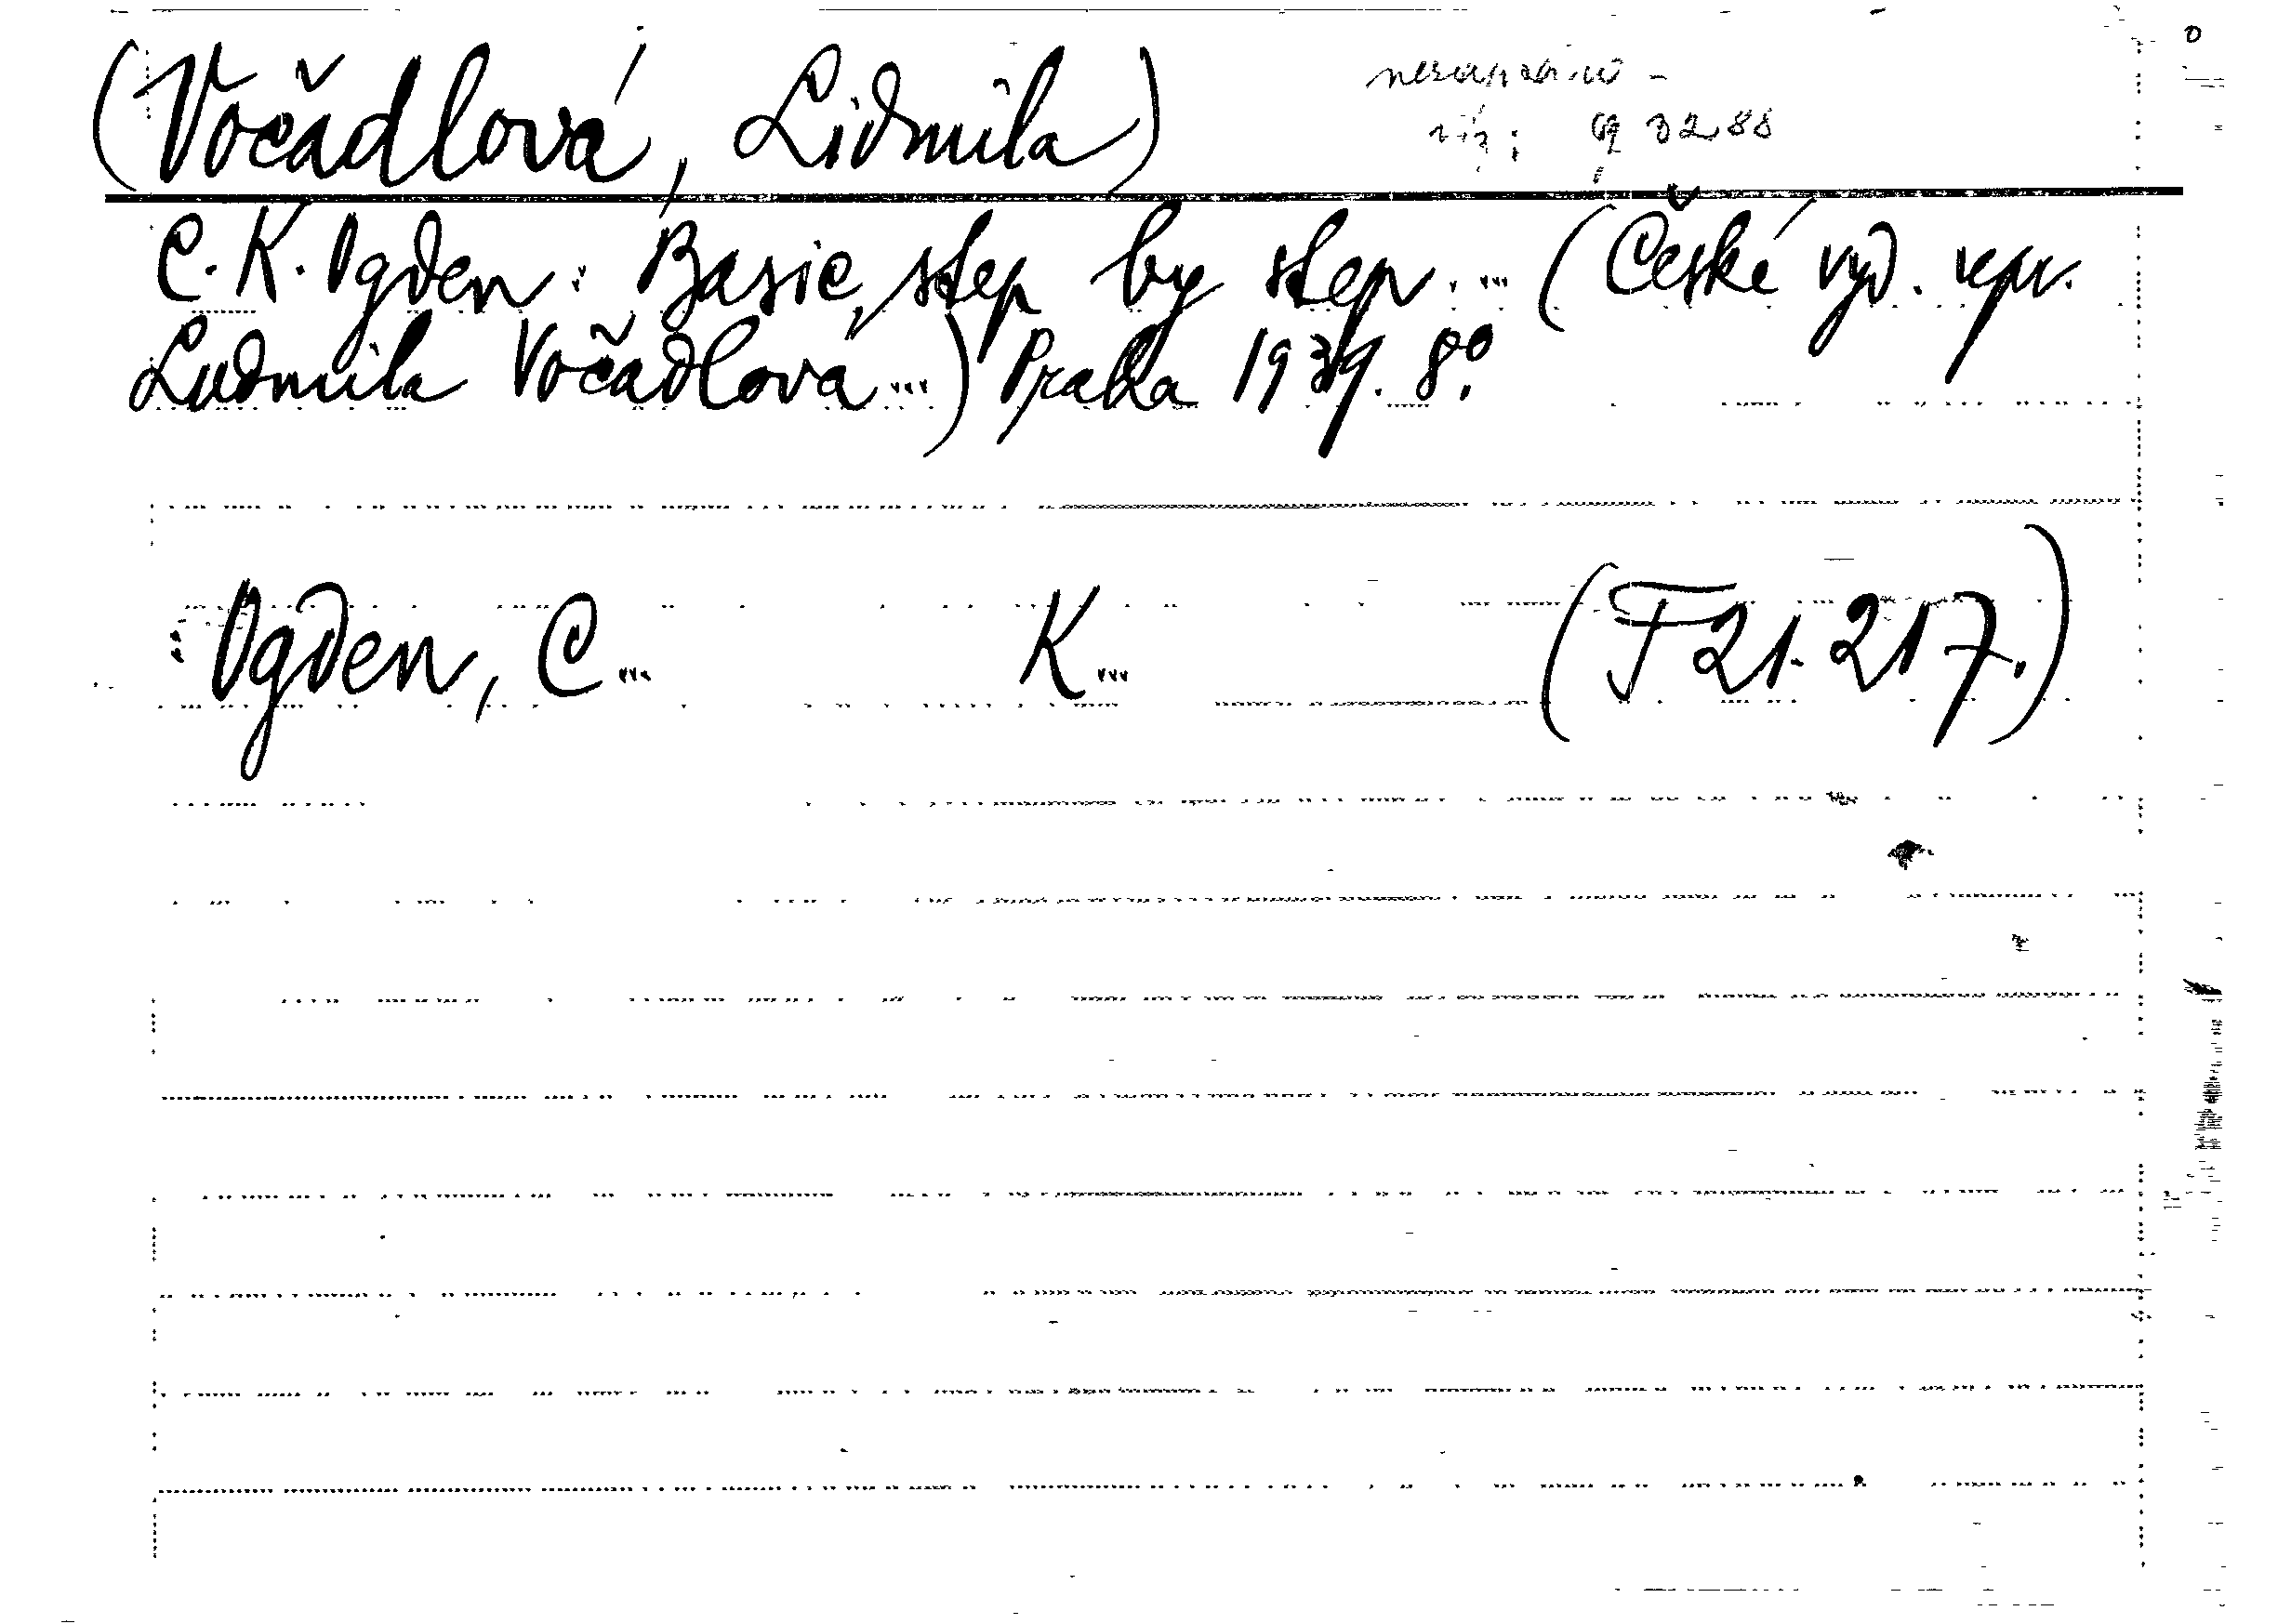 (Vočadlová, Lidmila)
viz:
C. K. Ogden: Basic, step by step. ... (České vyd. upr.
Ludmila Vočadlová ...) Praha 1939. 8°.
Ogden, C... K... (F 21.217.)